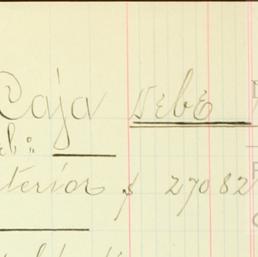 Caja Debe
eb:
terior $ 27082